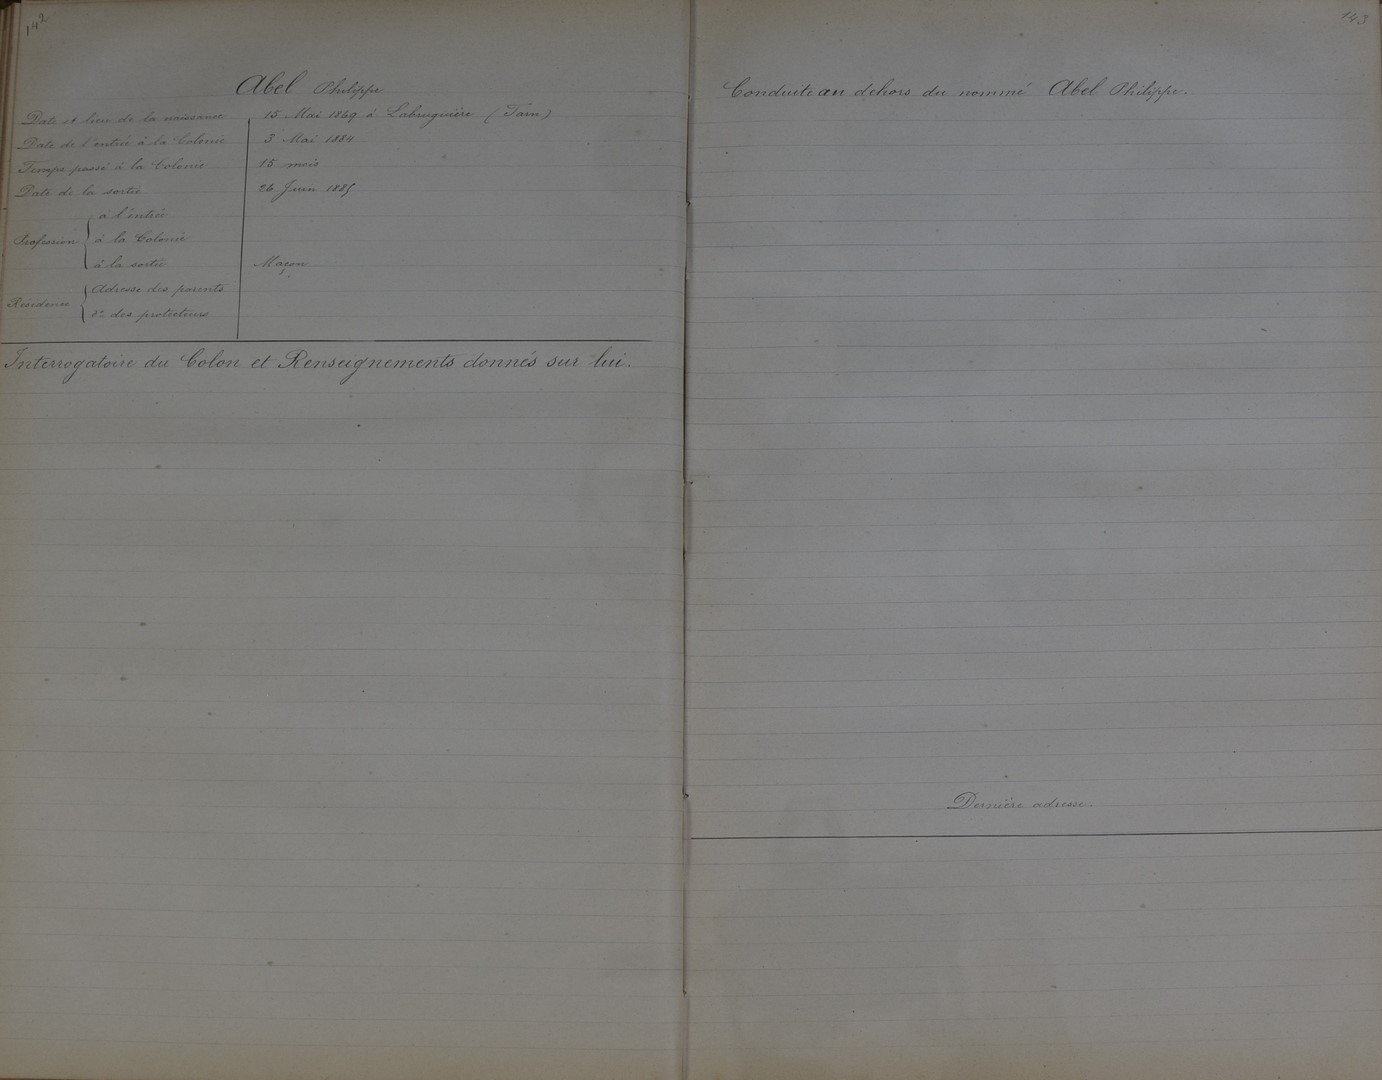 142
Abel Philippe
Date et lieu de la naissance 15 Mai 1869 à Labruguière (Tarn)
Date de l'entrée à la Colonie 3 Mai 1884
Temps passé à la Colonie 15 mois
Date de la sortie 26 Juin 1885
à l'entrée
Profession à la Colonie
à la sortie Maçon
Adresse des parents
Résidence
do des protecteurs
Interrogatoire du Colon et Renseignements donnés sur lui.
143
Conduite en dehors du nommé Abel Philippe.
Dernière adresse.